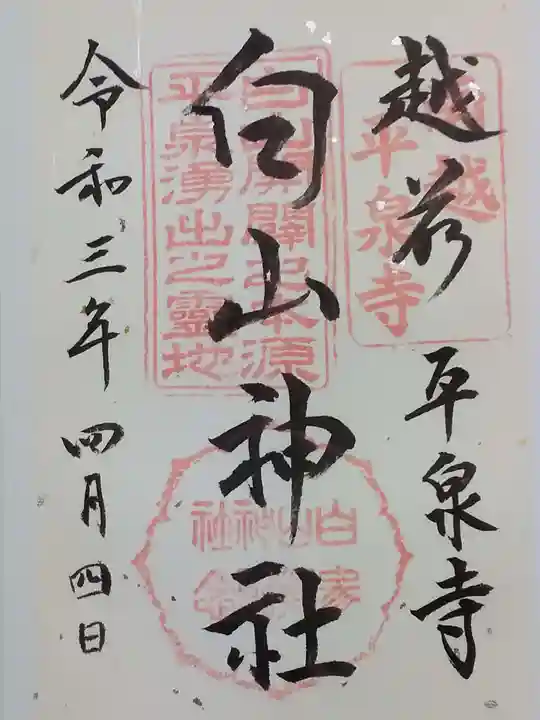 越前 平泉寺
白山神社
令和三年 四月四日
越
平泉寺
白山開闢之本源
平泉湧出之靈地
白山神社